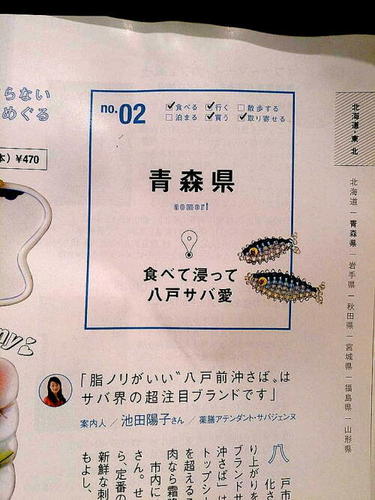 らない
めぐる
本）¥470
no.02
☑食べる ☑行く □散歩する
□泊まる ☑買う ☑取り寄せる
青森県
aomori
食べて浸って
八戸サバ愛
北海道・東北
北海道｜青森県｜岩手県｜秋田県｜宮城県｜福島県｜山形県
「脂ノリがいい“八戸前沖さば”は
サバ界の超注目ブランドです」
案内人／池田陽子さん／薬膳アテンダント・サバジェンヌ
八戸
り上がり
ブランドサ
沖さば」は
トップシ
を超える
肉なら霜降
市内に
さん。せ
ら、定番の
新鮮な刺
もよし、